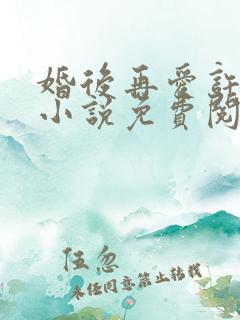 婚後再愛
小説免費閱
伍忽
未经同意禁止转载